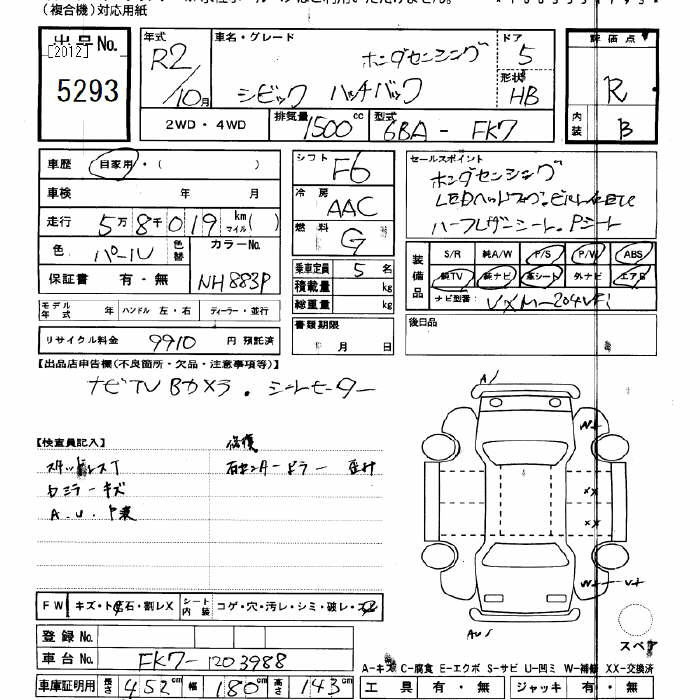 (複合機)対応用紙
出品No.
[2012]
5293
年式 R2/10月
車名・グレード ホンダセンシング
シビック ハッチバック
ドア 5
形状 HB
評価点 R
内装 B
2WD・4WD
排気量 1500cc
型式 6BA-FK7
車歴 自家用・( )
車検 年 月
走行 5万8千019 km マイル( )
色 パール
色替
カラーNo. NH883P
保証書 有・無
モデル年式 年
ハンドル 左・右
ディーラー・並行
リサイクル料金 9910 円 預託済
シフト F6
冷房 AAC
燃料 G
乗車定員 5名
積載量 kg
総重量 kg
書類期限
月 日
セールスポイント
ホンダセンシング
ハーフレザーシート、Pシート
装備品
S/R 純A/W P/S P/W ABS
純TV 純ナビ 革シート 外ナビ エアB
ナビ型番: VXM-204VFi
後日品
【出品店申告欄(不良箇所・欠品・注意事項等)】
ナビTV Bカメラ. シートヒーター
【検査員記入】
修復
右センターピラー
ミラーキズ
FW キズ・ト石・割レX
シート内装 コゲ・穴・汚レ・シミ・破レ・
登録No.
車台No. FK7-1203988
車庫証明用 長さ 452cm 幅 180cm 高さ 143cm
A
W+
XX
XX
スペア
A-キズ C-腐食 E-エクボ S-サビ U-凹ミ W-補修 XX-交換済
工具 有・無 ジャッキ 有・無